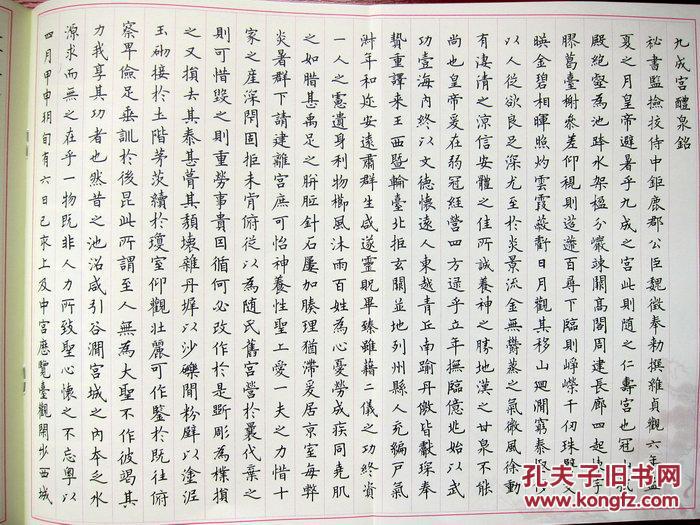 九成宮醴泉銘
秘書監撿挍侍中鉅鹿郡公臣魏徵奉勅撰維貞觀六年孟
夏之月皇帝避暑乎九成之宮此則隨之仁壽宮也冠
殿絶壑為池跨水架楹分巖竦闕高閣周建長廊四起
膠葛臺榭參差仰視則迢遰百尋下臨則崢嶸千仞珠璧交
暎金碧相暉照灼雲霞蔽虧日月觀其移山廻澗窮泰極
以人從欲良足深尤至於炎景流金無鬱蒸之氣微風徐動
有淒清之涼信安體之佳所誠養神之勝地漢之甘泉不能
尚也皇帝爰在弱冠經營四方逮乎立年撫臨億兆始以武
功壹海內終以文德懷遠人東越青丘南踰丹儌皆獻琛奉
贄重譯来王西暨輪臺北拒玄闕並地列州縣人充編戶氣
淑年和迩安遠肅群生咸遂靈貺畢臻雖藉二儀之功終資
一人之慮遺身利物櫛風沐雨百姓為心憂勞成疾同堯肌
之如腊甚禹足之胼胝針石屢加腠理猶滯爰居京室每弊
炎暑群下請建離宮庶可怡神養性聖上愛一夫之力惜十
家之産深閇固拒未肯俯從以為隨氏舊宮營於曩代棄之
則可惜毀之則重勞事貴因循何必改作於是斲彫為樸損
之又損去其泰甚葺其頹壞雜丹墀以沙礫間粉壁以塗泥
玉砌接於土階茅茨續於瓊室仰觀壯麗可作鑒於既往俯
察卑儉足垂訓於後昆此所謂至人無為大聖不作彼竭其
力我享其功者也然昔之池沼咸引谷澗宮城之內本乏水
源求而無之在乎一物既非人力所致聖心懷之不忘粵以
四月甲申朔旬有六日己亥上及中宮歷覽臺觀閑步西城
孔夫子旧书网
kongfz.com